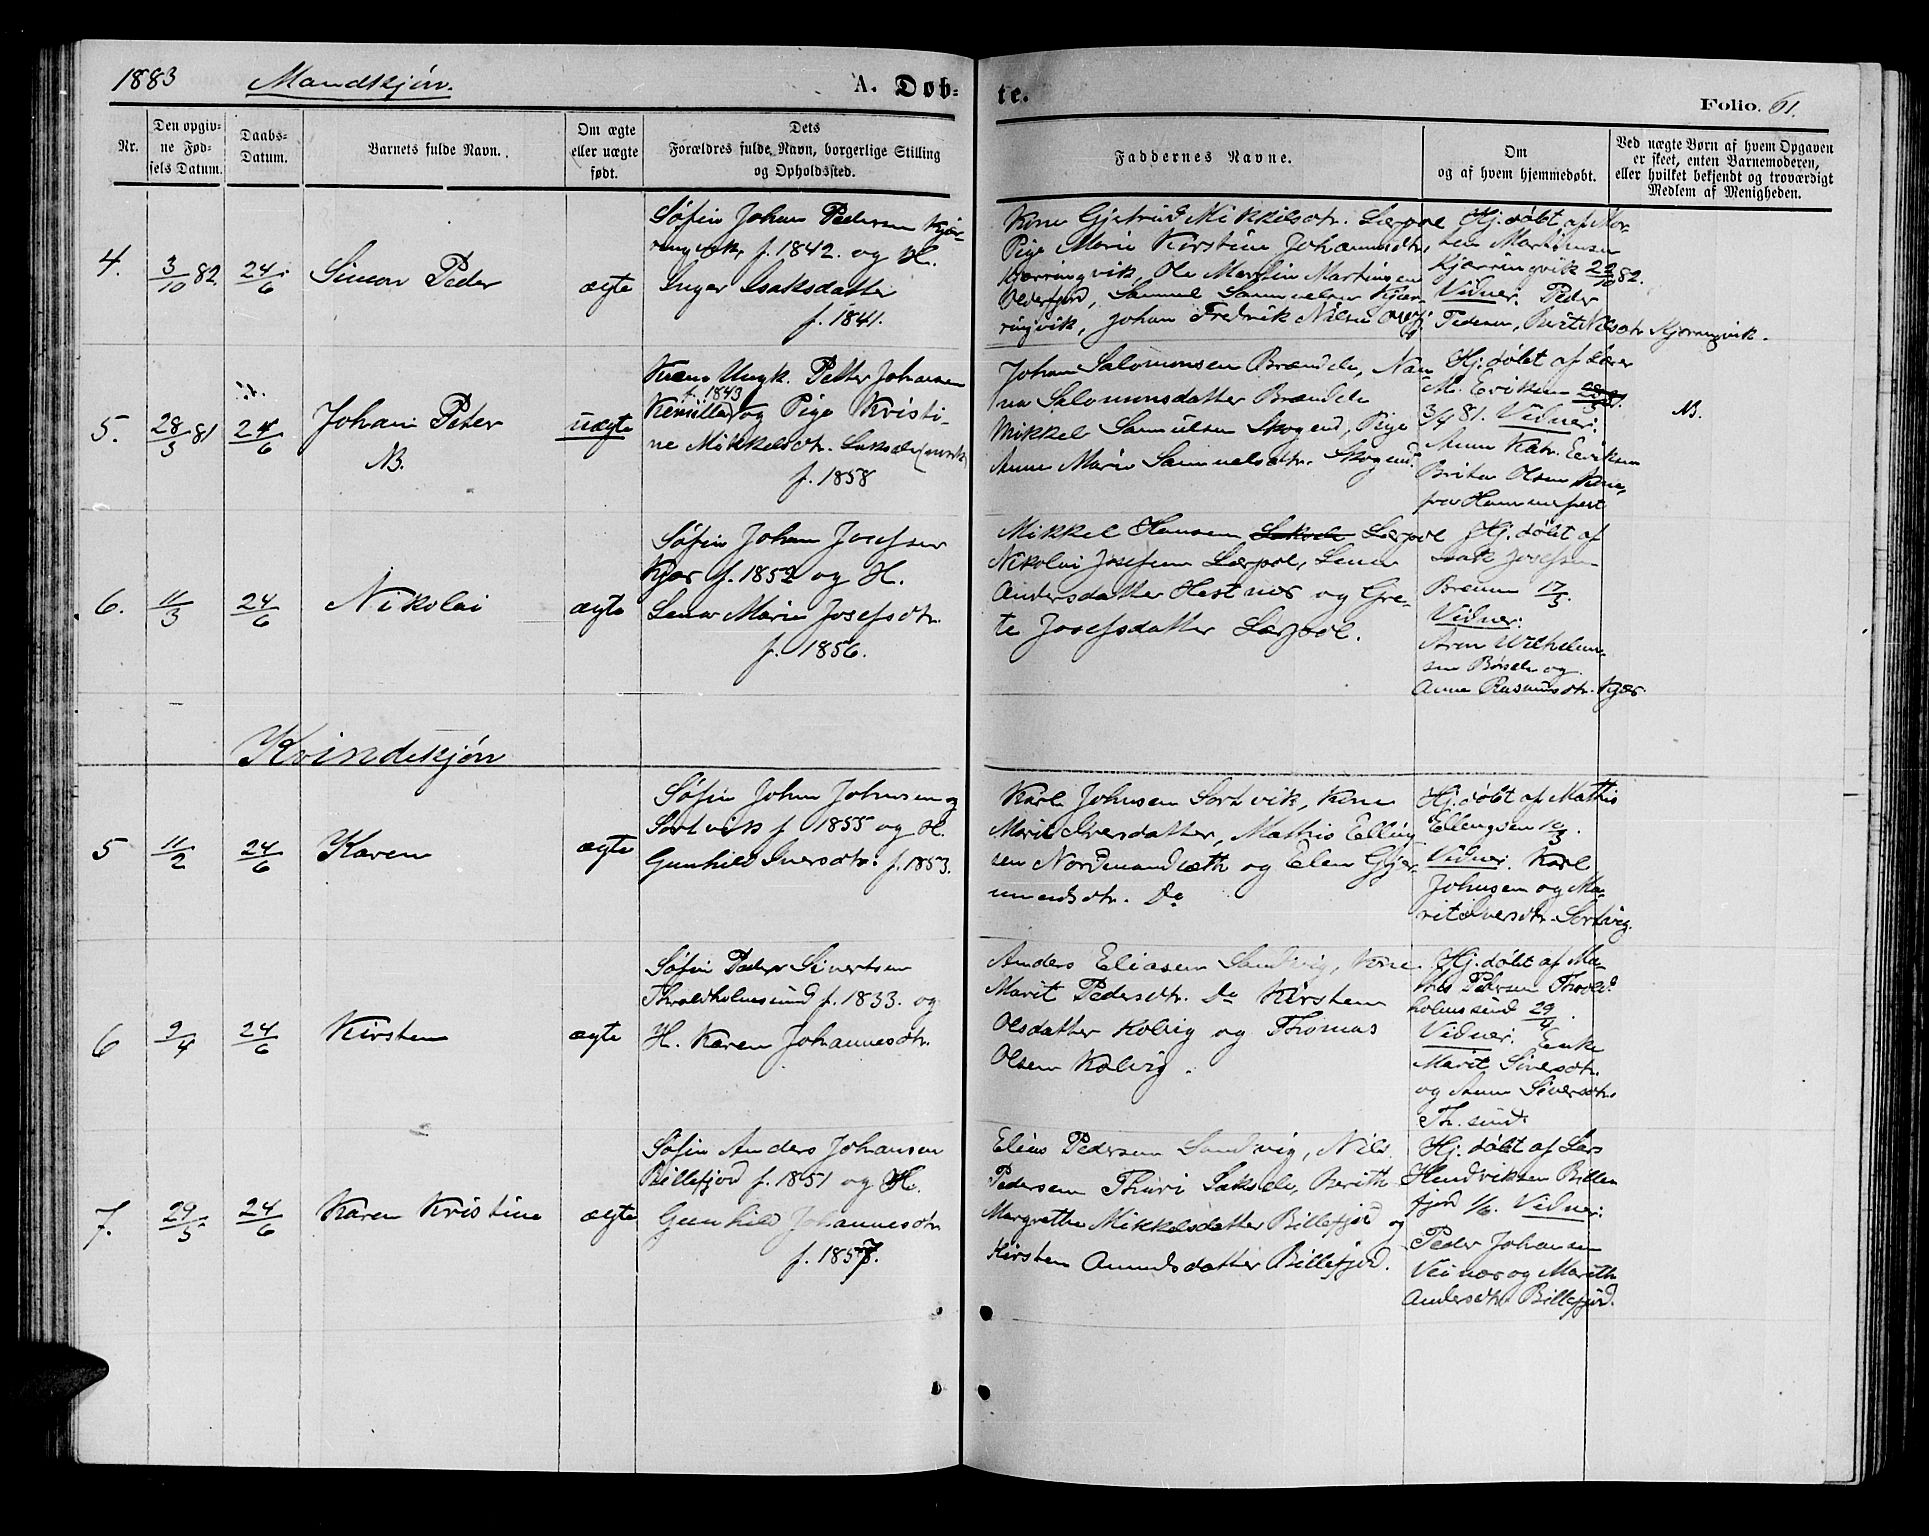 1883 Mandskjøn. A. Døb-
te. Folio. 61.
Nr.
Den opgiv-
ne Fød-
sels Datum.
Daabs-
Datum.
Barnets fulde Navn.
Om ægte
eller uægte
født.
Dets
Forældres fulde Navn, borgerlige Stilling
og Opholdssted.
Faddernes Navne.
Om
og af hvem hjemmedøbt.
Ved uægte Børn af hvem Opgaven
er skeet, enten Barnemoderen,
eller hvilket bekjendt og troværdigt
Medlem af Menigheden.
4.
3/10 82
24/6
Simon Peder
ægte
Søfin Johan Pedersen Kjær-
ringvik, f. 1842. og H.
Inger Isaksdatter
f. 1841.
Kone Gjertrud Mikkelsdtr. Lærpol
Pige Marie Kirstine Johannesdtr,
Kjærringvik, Ole Martin Martinsen
Olderfjord, Samuel Samuelsen Kjær-
ringvik, Johan Fredrik Nilsen
Hj. døbt af Mor-
ten Mortensen
Kjærringvik 22/10 82.
Vidner. Peder
Pedersen, Berit Nilsdtr Kjærringvik.
5.
28/3 81
24/6
Johan Peter
NB.
uægte
Kvæn Ungk. Petter Johansen
f. 1843
og Pige Kristi-
ne Mikkelsdtr. Lakselv (norsk)
f. 1858
Johan Salomonsen Brændelv, Nan-
na Salomonsdatter Brændelv
Mikkel Samuelsen Skogend, Pige
Anne Marie Samuelsdtr. Skogend.
Hj. døbt af Lærer
M. Eriksen
3/4 81. Vidner:
Anne Katr. Eriksen
Brita Olsen Kone,
fra Hammerfest
NB.
6.
11/3
24/6
Nikolai
ægte
Søfin Johan Josefsen
Kjær f. 1852 og H.
Lena Marie Josefsdtr.
f. 1856.
Mikkel Hansen Lakselv Lærpol
Nikolai Josefsen Lærpol, Lena
Andersdatter Hestnes og Gre-
te Josefsdatter Lærpol.
Hj. døbt af
Isak Josefsen
Brenna 17/3.
Vidner:
Aron Wilhelm-
sen Børselv og
Anne Rasmusdtr. Kjær.
Kvindekjøn
5
11/2
24/6
Karen
ægte
Søfin Johan Johnsen og
Sortvik f 1855 og H.
Gunhild Iversdtr. f. 1853.
Karl Johnsen Sortvik, Kone
Marit Iversdatter, Mathis Elling-
sen Nordmandsæth og Elen Gjer-
mundsdtr. Do
Hj. døbt af Mathis
Ellengsen
Vidner. Karl
Johnsen og Ma-
rit Iversdtr. Sortvig.
6
2/4
24/6
Kirsten
ægte
Søfin Peder Sivertsen
Throldholmesund f. 1833. og
H. Karen Johannesdtr.
Anders Eliasen Sandvig, Kone
Marit Pedersdtr. Do Kirsten
Olsdatter Kolvig og Thomas
Olsen Kolvig.
Hj. døbt af Ma-
this Pedersen Throld-
holmssund 29/4.
Vidner: Enke
Marit Siversdtr.
og Anne Siversdtr.
Th. sund.
7.
29/5
24/6
Karen Kristine
ægte
Søfin Anders Johansen
Billefjord f. 1851 og H.
Gunhild Johannesdtr
f. 1857.
Elias Pedersen Sandvig, Nils
Pedersen Thuri Lakselv, Berith
Margrethe Mikkelsdatter Billefjord og
Kirsten Amundsdatter Billefjord.
Hj. døbt af Lars
Hendriksen Bille-
fjord 1/6. Vidner:
Peder Johansen
Veinæs og Marith
Andersdtr Billefjord.